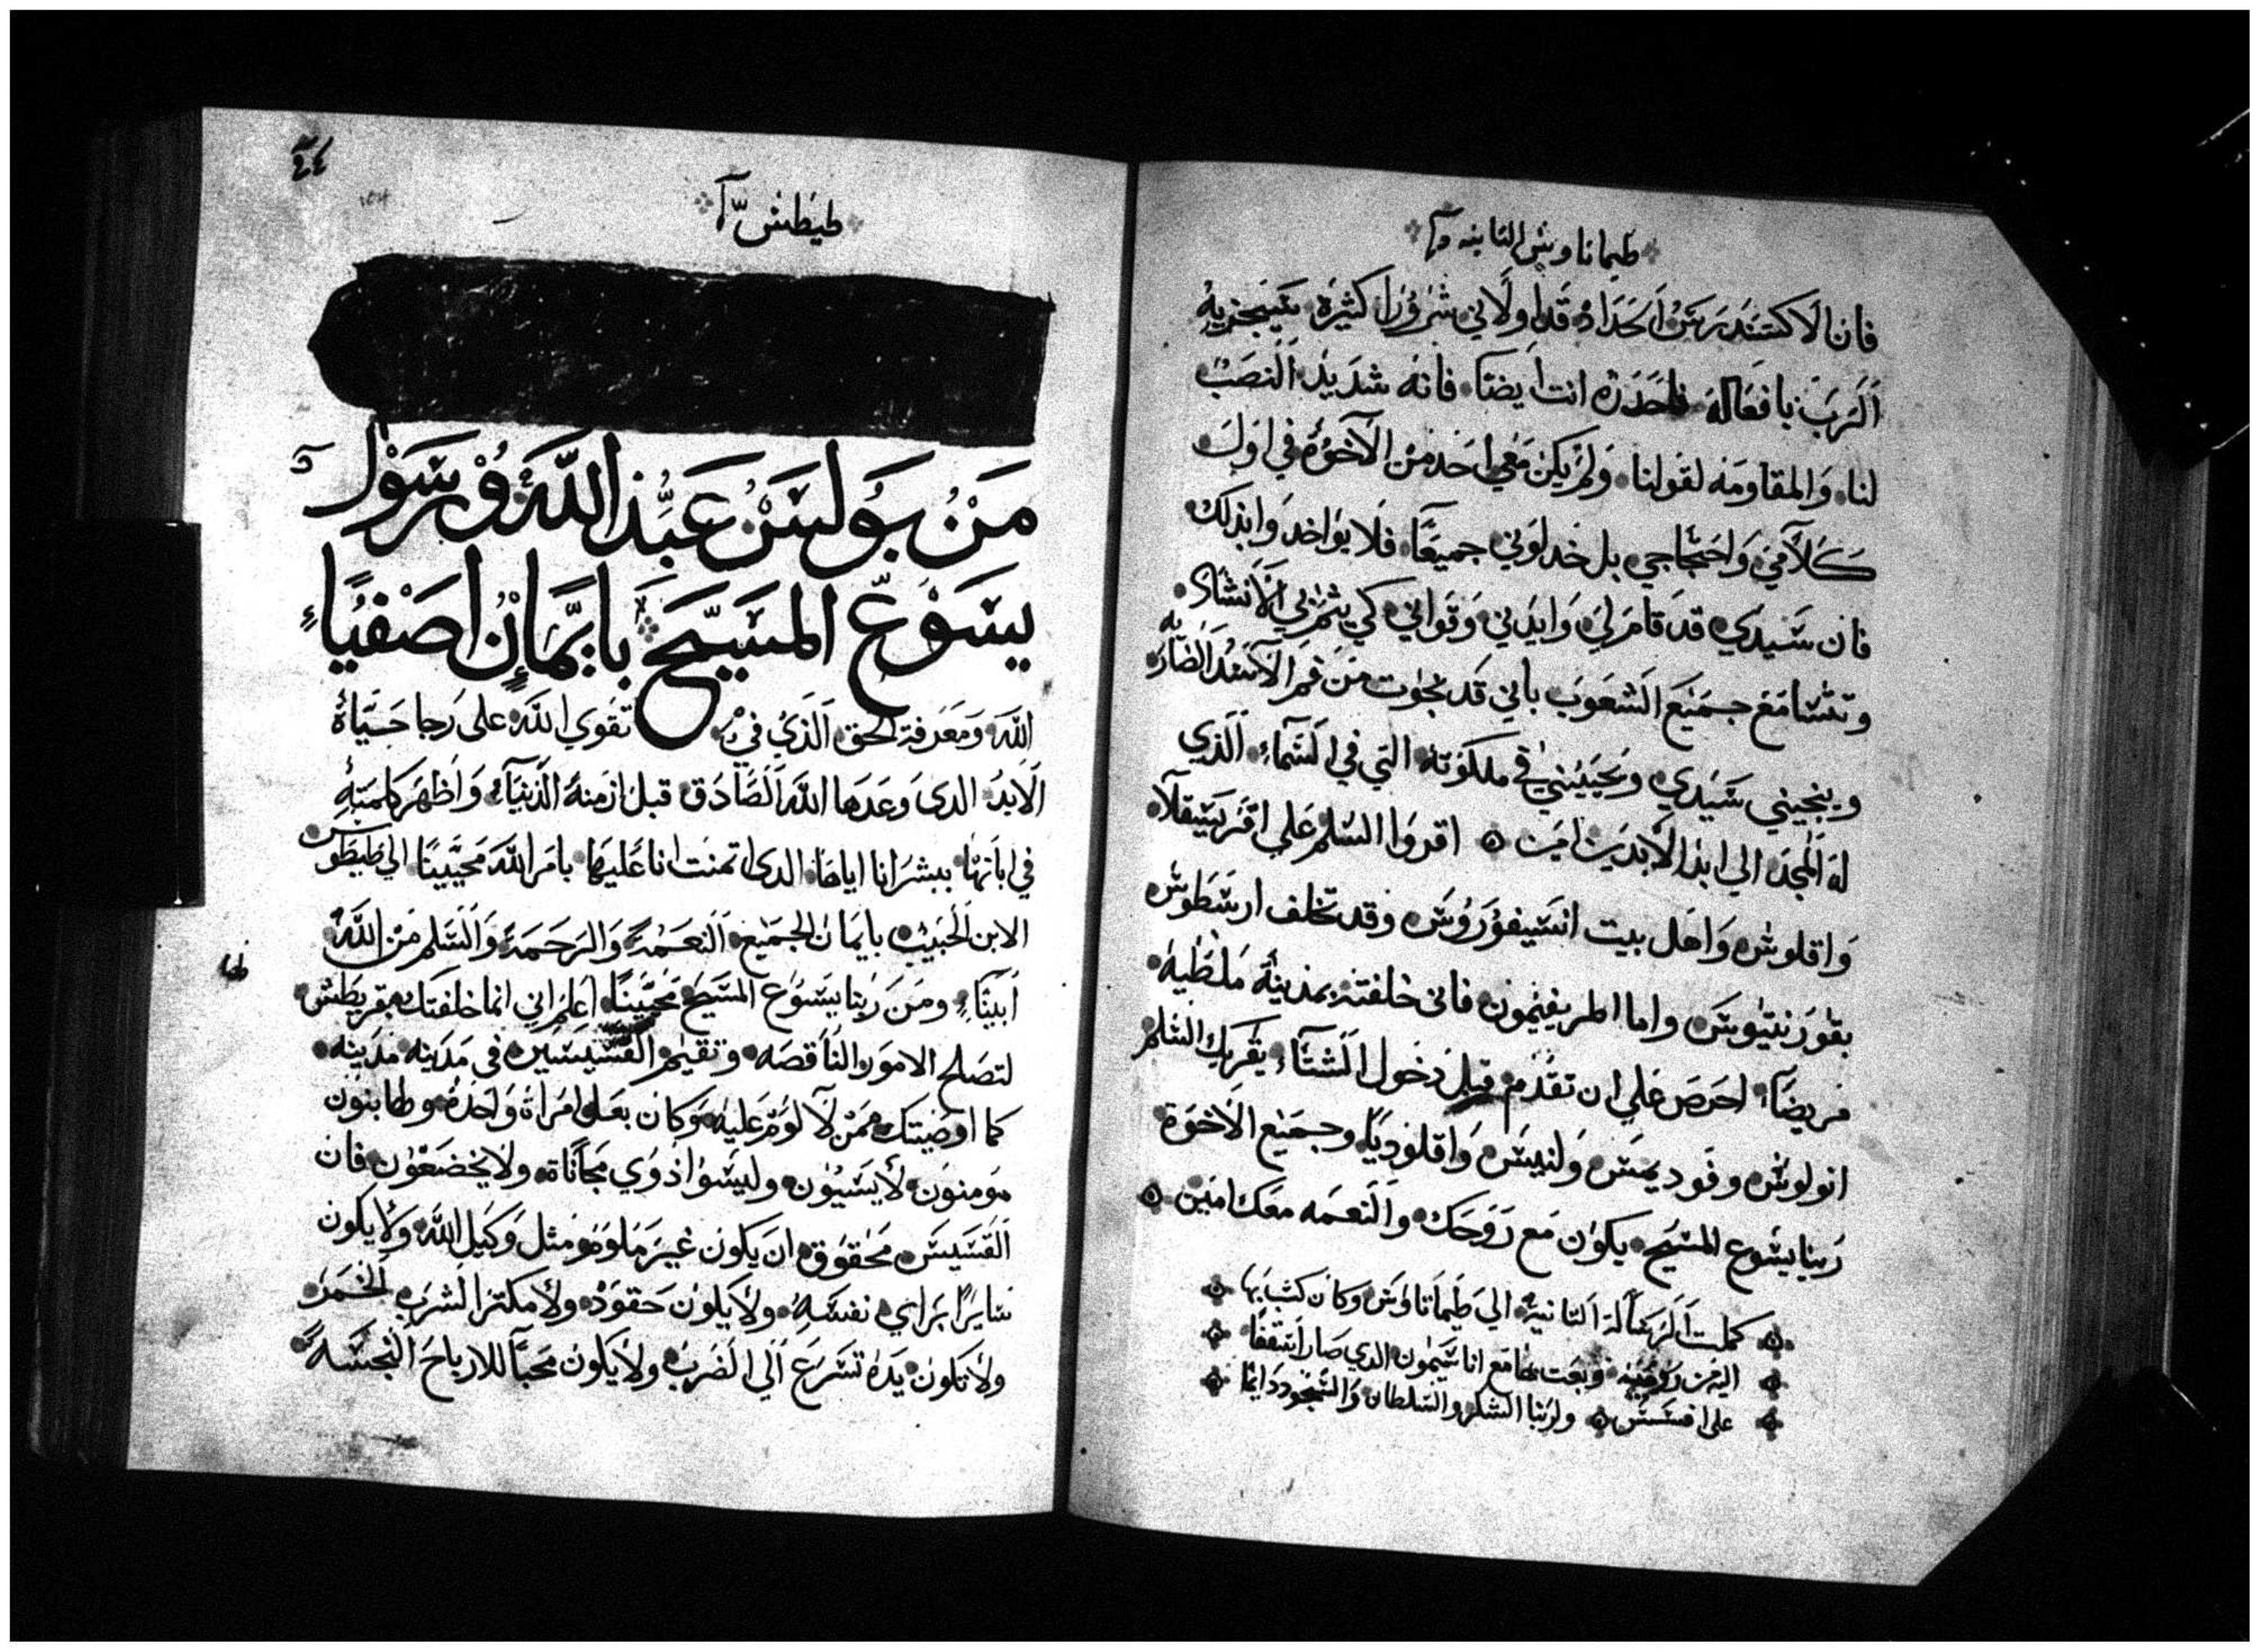 طيماتاوش الثانيه
فان الاكسندرس الحداد قد اولاني شرورا كثيرة سيجزيه
الرب بافعاله فاحذره انت ايضا فانه شديد النصب
لنا والمقاومه لقولنا ولم يكن معي احد من الاخوة في اول
كلامي واحتجاجي بل خذلوني جميعا فلا يواخدوا بذلك
فان سيدي قد قام لي وايدني وقواني كي يتم بي الانشار
به
وتتسامع جميع الشعوب باني قد نجوت من فم الاسد الضار
وينجيني سيدي ويحييني في ملكوته التي في السماء الذي
له المجد الي ابد الابدين امين اقروا السلم علي افريسقلا
واقلوس واهل بيت انسيفوروس وقد تخلف ارسطوس
بقورنتيوس واما اطريفيمون فاني خلفته بمدينة ملطيه
مريضا احرص علي ان تقدم قبل دخول الشتاء يقريك السلم
انولوش وفوديمس ولنيس واقلوديا وجميع الاخوة
ربنا يسوع المسيح يكون مع روحك والنعمه معك امين
كملت الرسالة الثانية الي طيماتاوس وكان كتب بها
اليه من روميه وبعت بها مع اناسيمون الدي صار اسقفا
علي افسس ولربنا الشكر والسلطان والتمجود دايما
طيطش
من بولس عبد الله ورسول
يسوع المسيح بايمان اصفياء
الله ومعرفة الحق الذي في تقوي الله علي رجا حياة
الابد الدي وعدها الله الصادق قبل ازمنة الدنيا واظهر كلمته
في ابانها ببشرانا اياها الدي اتمنت انا عليها بامر الله محيينا الي طيطوس
الابن الحبيب بايمان الجميع النعمة والرحمة والسلم من الله
ابينا ومن ربنا يسوع المسيح محيينا اعلم اني انما خلفتك بقريطش
لتصلح الامور الناقصه وتقيم القسيسين في مدينه مدينه
كما اوصيتك ممن لا لوم عليه وكان بعل امراة واحدة وطا بنون
مومنون لا يسبون وليسوا ذوي مجاناة ولا يخضعون فان
القسيس محقوق ان يكون غير ملوم مثل وكيل الله ولا يكون
سايرا براي نفسه ولا يكون حقود ولا مكثر الشرب الخمر
ولا تكون يده تسرع الي الضرب ولا يكون محبا للارباح النجسة